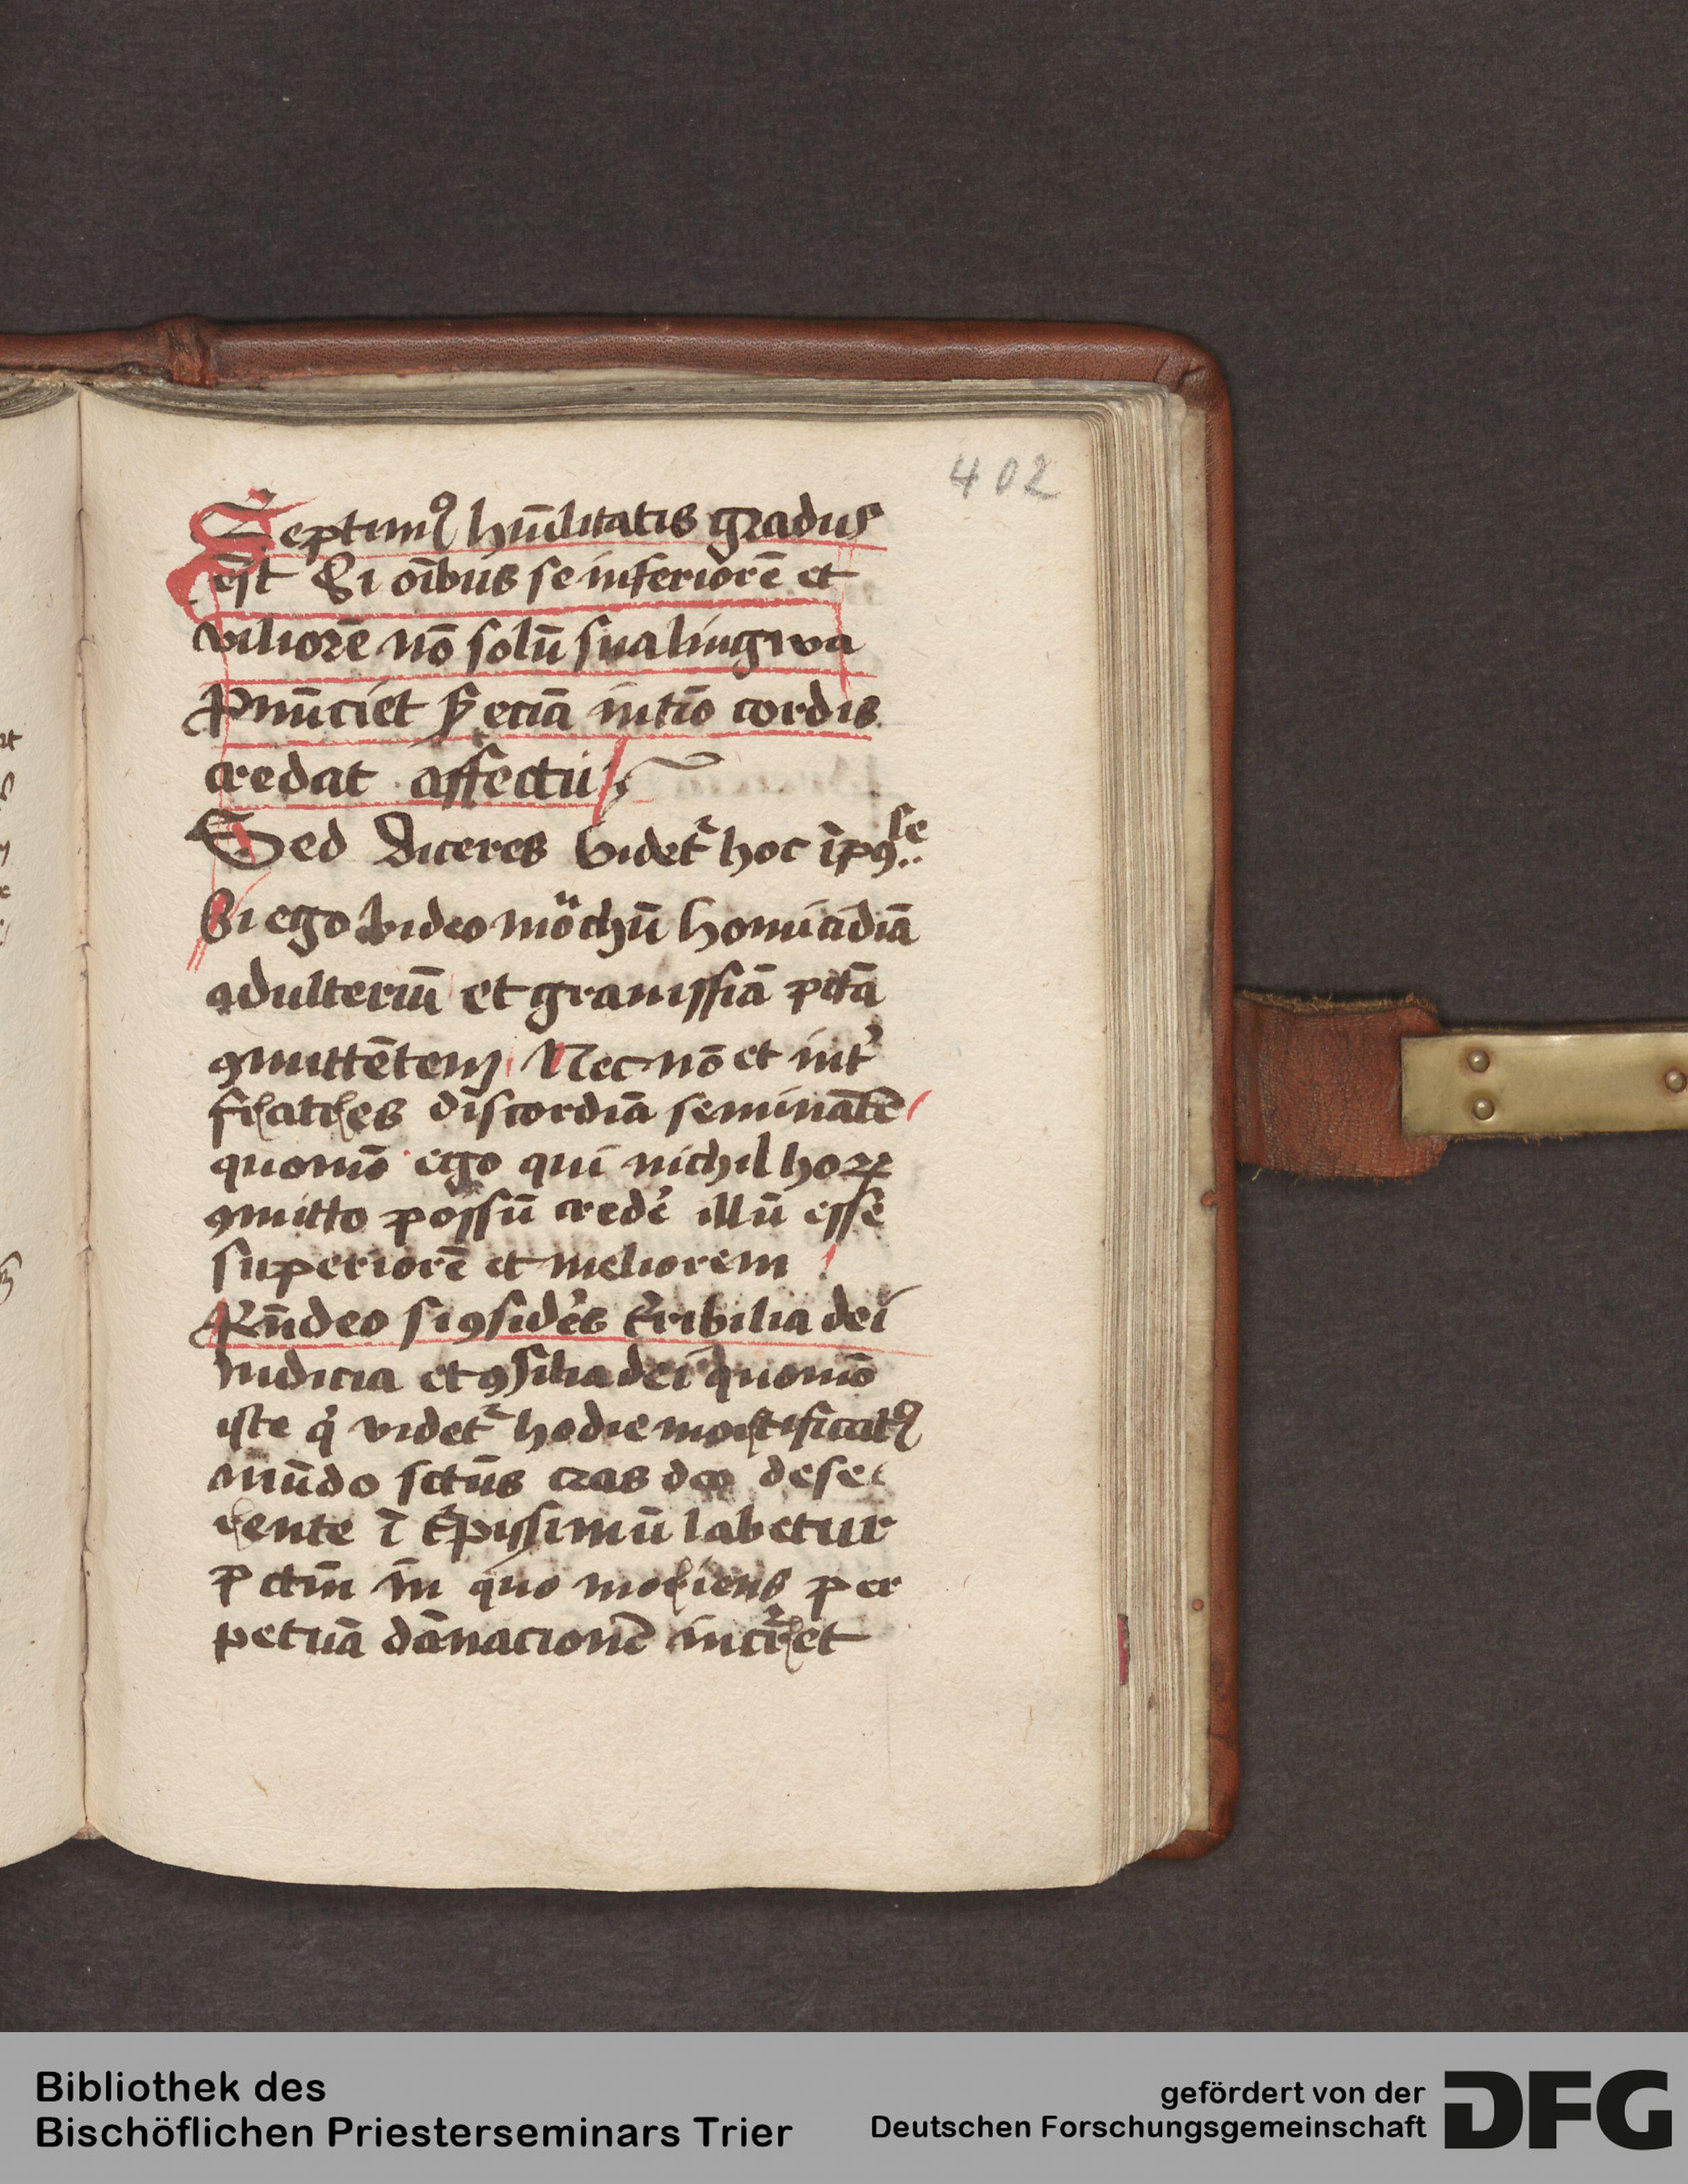 402
Septimꝰ hūilitatis gradus
est Si oībus se inferiorē et
viliorē nō solū sua lingwa
ꝓnūciet sꝫ eciā intīo cordis
credat affectu
Sed diceres videt᷑ hoc īpꝯse
Si ego video mōchū homicidiā
adulteriū et grauissīa pctā
ꝯmittētem Nec nō et int̉
fratres discordiā seminātē
quomō ego qui nichil hoꝝ
ꝯmitto possū credē illū esse
superiorē et meliorem
Rn̄deo si ꝯsideres t̉ribilia dei
iudicia et ꝯsilia dei quomō
iste q̇ videt᷑ hodie mortificatꝰ
mūdo sctūs cras deo dese
rente ī t᷑pissimū labetur
pctm̄ in quo moriens per
petuā dānacionē incr̄ret
Bibliothek des
Bischöflichen Priesterseminars Trier
gefördert von der
Deutschen Forschungsgemeinschaft
DFG